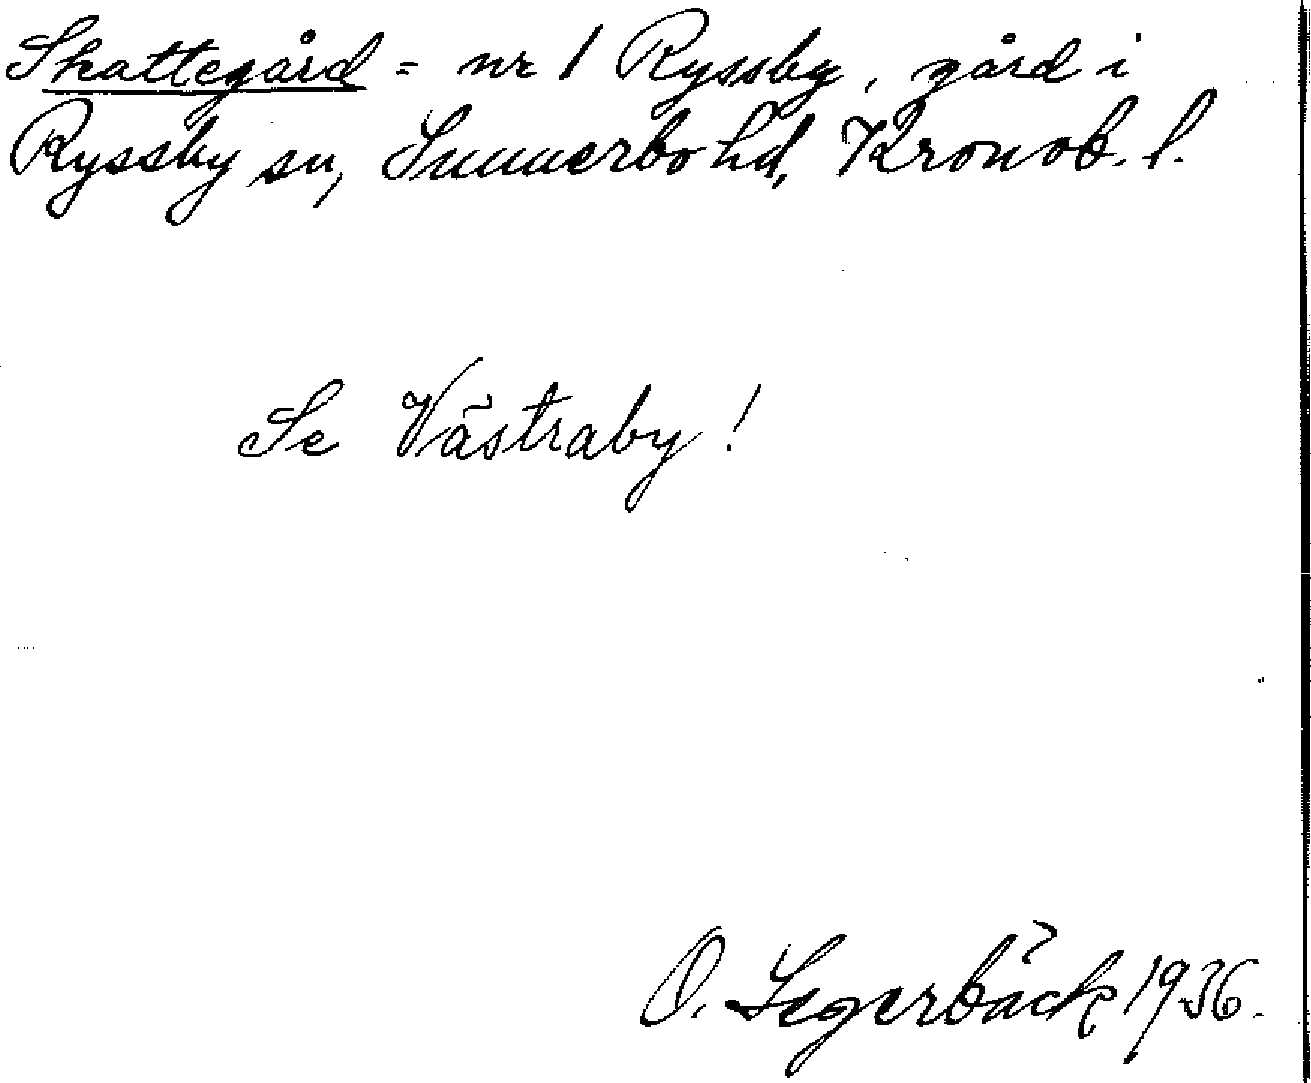 Skattegård = nr 1 Ryssby, gård i
Ryssby sn, Sunnerbo hd, Kronob. l.
Se Västraby!
O. Segerbäck 1936.